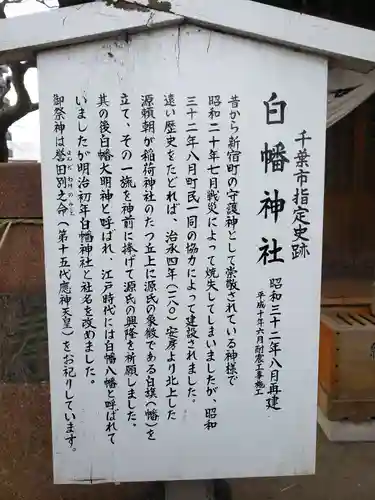 千葉市指定史跡
白幡神社
昭和三十二年八月再建
平成十年六月耐震工事施工
昔から新宿町の守護神として崇敬されている神様で
昭和二十年七月戦災によって焼失してしまいましたが、昭和
三十二年八月町民一同の協力によって建設されました。
遠い歴史をたどれば、治承四年(一一八〇)安房より北上した
源頼朝が稲荷神社のたつ丘上に源氏の象徴である白旗(幡)を
立て、その一旒を神前に捧げて源氏の興隆を祈願しました。
其の後白幡大明神と呼ばれ、江戸時代には白幡八幡と呼ばれて
いましたが明治初年白幡神社と社名を改めました。
御祭神は誉田別之命(第十五代應神天皇)をお祀りしています。
ほむだわけのみこと